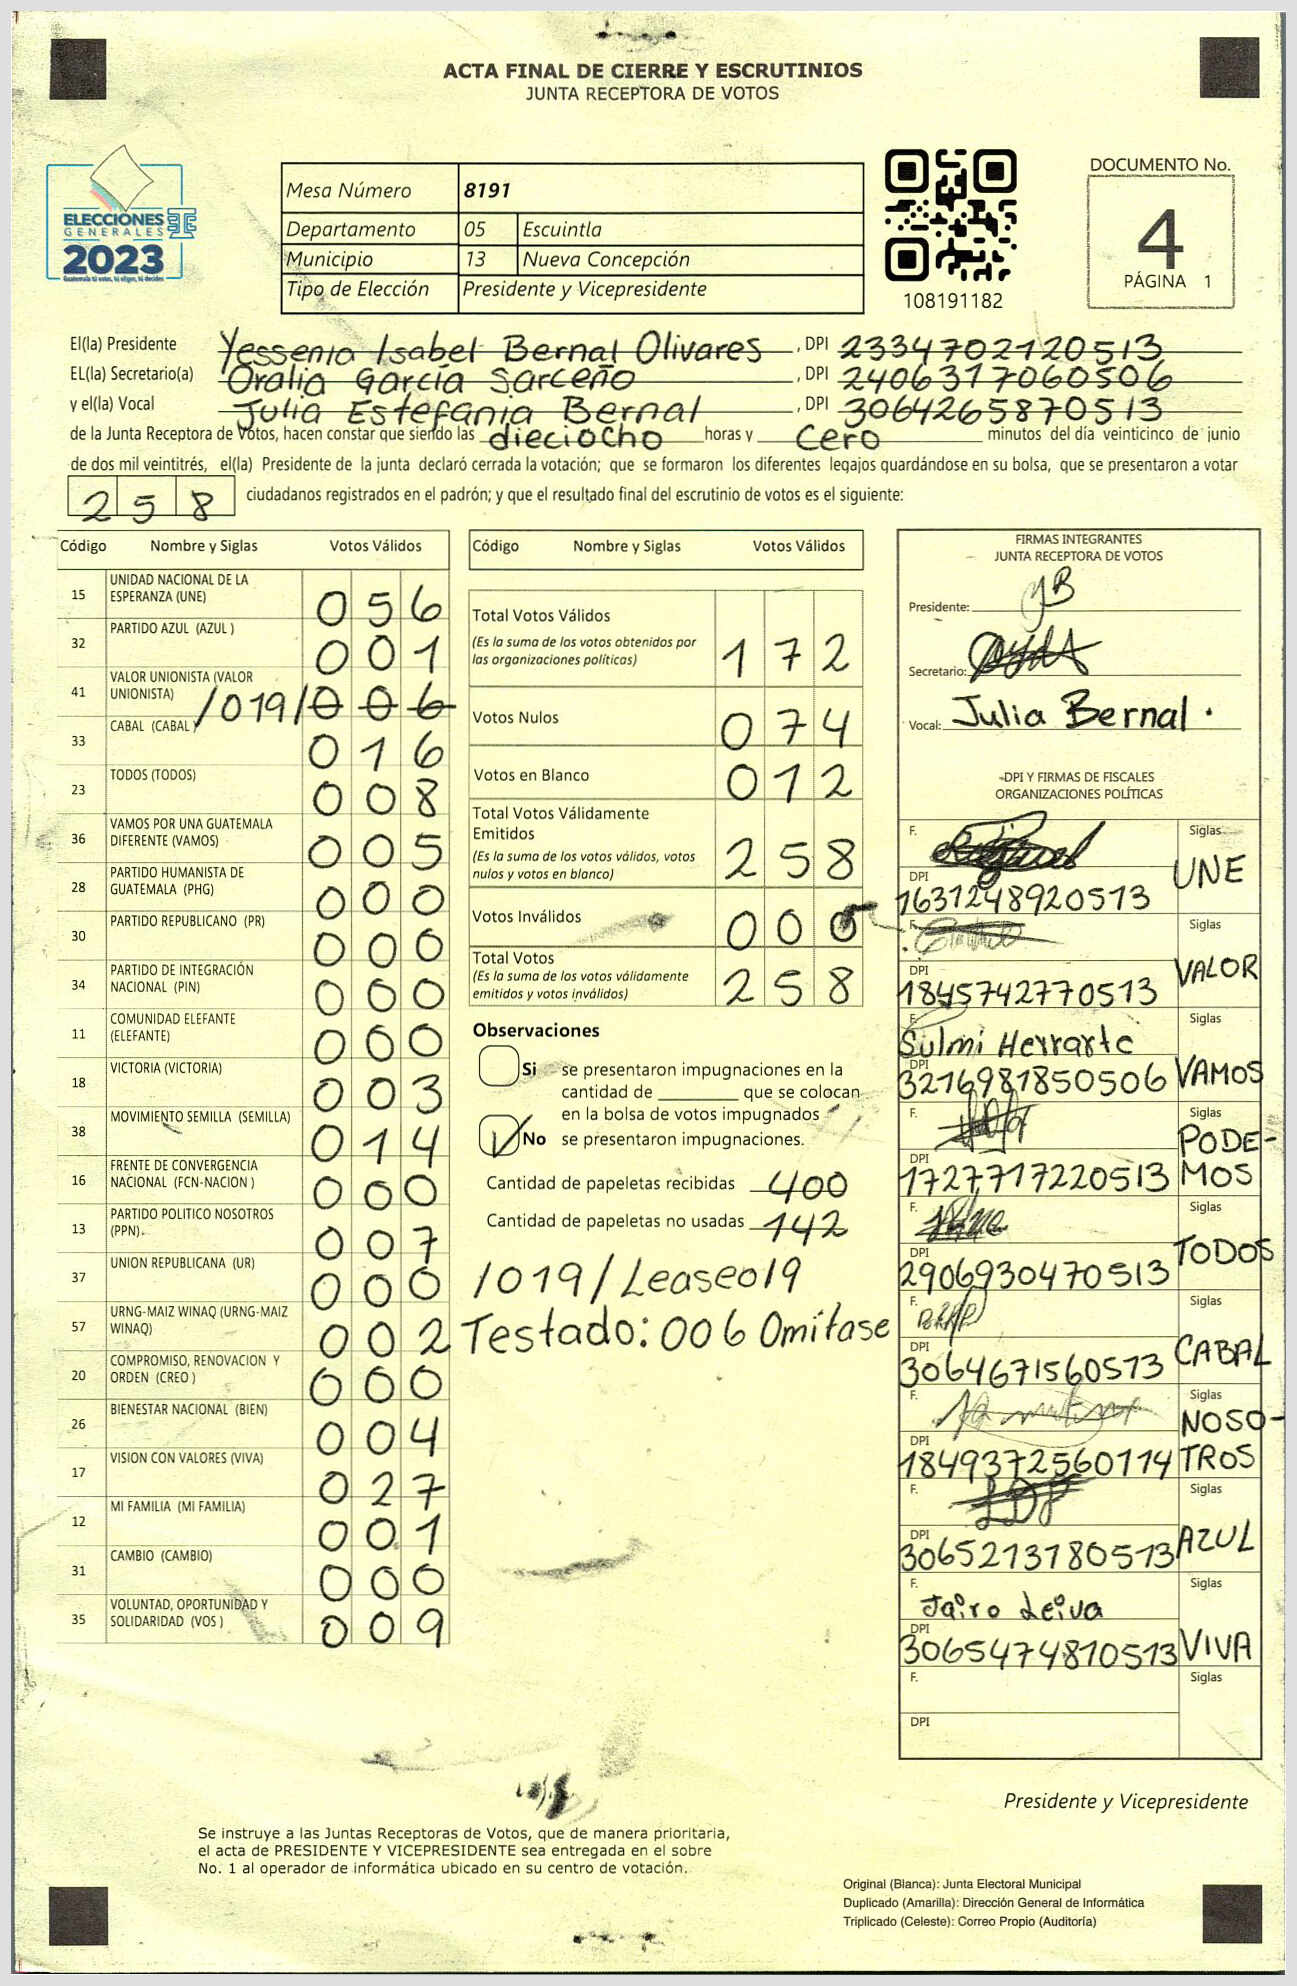 ACTA FINAL DE CIERRE Y ESCRUTINIOS
JUNTA RECEPTORA DE VOTOS
ELECCIONES
GENERALES
2023
Guatemala tú votas, tú eliges, tú decides
Mesa Número 8191
Departamento 05 Escuintla
Municipio 13 Nueva Concepción
Tipo de Elección Presidente y Vicepresidente
108191182
DOCUMENTO No.
4
PÁGINA 1
El(la) Presidente Yessenia Isabel Bernal Olivares, DPI 2334702120513
EL(la) Secretario(a) Oralia García Sarceño, DPI 2406317060506
y el(la) Vocal Julia Estefania Bernal, DPI 3064265870513
de la Junta Receptora de Votos, hacen constar que siendo las dieciocho horas y cero minutos del día veinticinco de junio
de dos mil veintitrés, el(la) Presidente de la junta declaró cerrada la votación; que se formaron los diferentes legajos guardándose en su bolsa, que se presentaron a votar
258 ciudadanos registrados en el padrón; y que el resultado final del escrutinio de votos es el siguiente:
Código Nombre y Siglas Votos Válidos
15 UNIDAD NACIONAL DE LA ESPERANZA (UNE) 056
32 PARTIDO AZUL (AZUL ) 001
41 VALOR UNIONISTA (VALOR UNIONISTA) /019/ 006
33 CABAL (CABAL ) 016
23 TODOS (TODOS) 008
36 VAMOS POR UNA GUATEMALA DIFERENTE (VAMOS) 005
28 PARTIDO HUMANISTA DE GUATEMALA (PHG) 000
30 PARTIDO REPUBLICANO (PR) 000
34 PARTIDO DE INTEGRACIÓN NACIONAL (PIN) 000
11 COMUNIDAD ELEFANTE (ELEFANTE) 000
18 VICTORIA (VICTORIA) 003
38 MOVIMIENTO SEMILLA (SEMILLA) 014
16 FRENTE DE CONVERGENCIA NACIONAL (FCN-NACION ) 000
13 PARTIDO POLITICO NOSOTROS (PPN) 007
37 UNION REPUBLICANA (UR) 000
57 URNG-MAIZ WINAQ (URNG-MAIZ WINAQ) 002
20 COMPROMISO, RENOVACION Y ORDEN (CREO ) 000
26 BIENESTAR NACIONAL (BIEN) 004
17 VISION CON VALORES (VIVA) 027
12 MI FAMILIA (MI FAMILIA) 001
31 CAMBIO (CAMBIO) 000
35 VOLUNTAD, OPORTUNIDAD Y SOLIDARIDAD (VOS ) 009
Código Nombre y Siglas Votos Válidos
Total Votos Válidos
(Es la suma de los votos obtenidos por
las organizaciones políticas) 172
Votos Nulos 074
Votos en Blanco 012
Total Votos Válidamente
Emitidos
(Es la suma de los votos válidos, votos
nulos y votos en blanco) 258
Votos Inválidos 000
Total Votos
(Es la suma de los votos válidamente
emitidos y votos inválidos) 258
Observaciones
Si se presentaron impugnaciones en la
cantidad de ________ que se colocan
en la bolsa de votos impugnados
No se presentaron impugnaciones.
Cantidad de papeletas recibidas 400
Cantidad de papeletas no usadas 142
/019/Lease019
Testado: 006 Omitase
FIRMAS INTEGRANTES
JUNTA RECEPTORA DE VOTOS
Presidente: YB
Secretario:
Vocal: Julia Bernal.
DPI Y FIRMAS DE FISCALES
ORGANIZACIONES POLÍTICAS
F. Siglas
UNE
DPI
1631248920513
F. Siglas
VALOR
DPI
1845742770513
F. Siglas
Sulmi Herrarte
DPI
3216981850506 VAMOS
F. Siglas
PODE-
DPI
1727717220513 MOS
F. Siglas
TODOS
DPI
2906930470513
F. Siglas
CABAL
DPI
3064671560513
F. Siglas
NOSO-
DPI
1849372560114 TROS
F. Siglas
AZUL
DPI
3065213180513
F. Siglas
Jairo Leiva
DPI
3065474810513 VIVA
F. Siglas
DPI
Presidente y Vicepresidente
Se instruye a las Juntas Receptoras de Votos, que de manera prioritaria,
el acta de PRESIDENTE Y VICEPRESIDENTE sea entregada en el sobre
No. 1 al operador de informática ubicado en su centro de votación.
Original (Blanca): Junta Electoral Municipal
Duplicado (Amarilla): Dirección General de Informática
Triplicado (Celeste): Correo Propio (Auditoría)